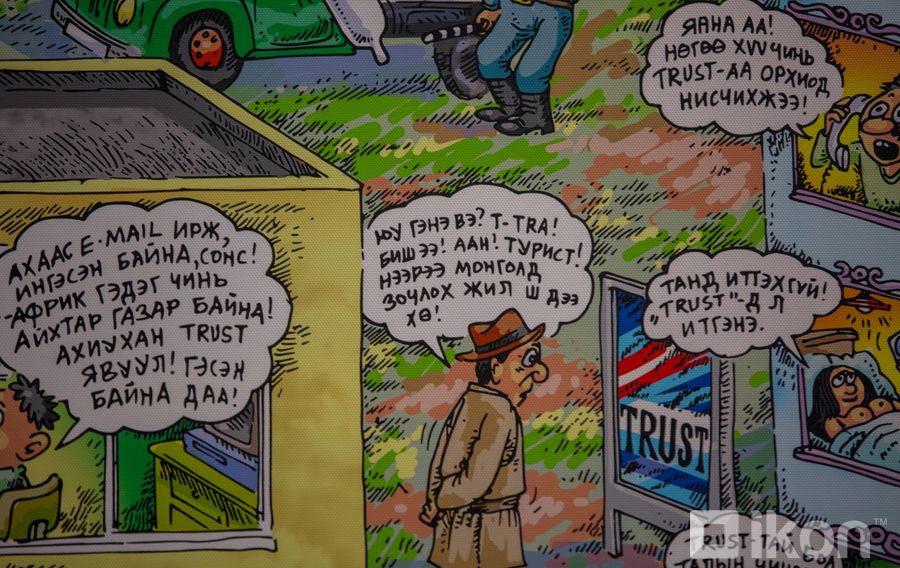 ЯАНА АА!
НӨГӨӨ ХҮҮ ЧИНЬ
TRUST-АА ОРХИОД
НИСЧИХЖЭЭ!
АХААС E-MAIL ИРЖ,
ИНГЭСЭН БАЙНА, СОНС!
-АФРИК ГЭДЭГ ЧИНЬ
АЙХТАР ГАЗАР БАЙНА!
АХИУХАН TRUST
ЯВУУЛ! ГЭСЭН
БАЙНА ДАА!
ЮУ ГЭНЭ ВЭ? T-TRA!
БИШ ЭЭ! ААН! ТУРИСТ!
НЭЭРЭЭ МОНГОЛД
ЗОЧЛОХ ЖИЛ Ш ДЭЭ
ХӨ!
ТАНД ИТГЭХГҮЙ!
"TRUST"-Д Л
ИТГЭНЭ.
TRUST
TRUST-ТАЙ БОЛ
ТАЛЫН
ikon™